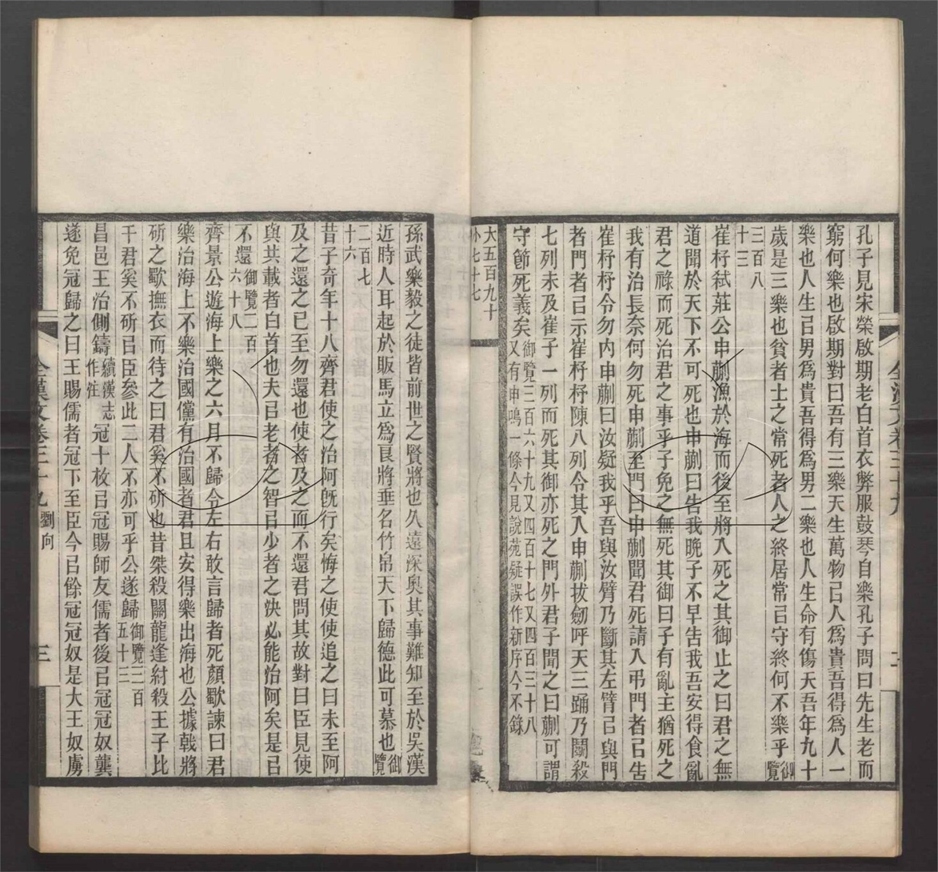 孔子見宋榮啟期老白首衣弊服鼓琴自樂孔子問曰先生老而
窮何樂也啟期對曰吾有三樂天生萬物㠯人爲貴吾得爲人一
樂也人生㠯男爲貴吾得爲男二樂也人生命有傷夭吾年九十
歲是三樂也貧者士之常死者人之終居常㠯守終何不樂乎御覽
三百八
十三
崔杼弑莊公申蒯漁於海而後至將入死之其御止之曰君之無
道聞於天下不可死也申蒯曰告我晚子不早告我吾安得食亂
君之祿而死治君之事乎子免之無死其御曰子有亂主猶死之
我有治長奈何勿死申蒯至門曰申蒯聞君死請入弔門者㠯告
崔杼杼令勿内申蒯曰汝疑我乎吾與汝臂乃斷其左臂㠯與門
者門者㠯示崔杼杼陳八列令其入申蒯拔劒呼天三踊乃鬭殺
七列未及崔子一列而死其御亦死之門外君子聞之曰蒯可謂
守節死義矣御覽三百六十九又四百十七又四百三十八
又有申鳴一條今見說苑疑誤作新序今不錄
大五百九十
小七十七
全漢文卷三十九
孫武樂毅之徒皆前世之賢將也久遠深奥其事難知至於吳漢
近時人耳起於販馬立爲良將垂名竹帛天下歸德此可慕也御覽
二百七
十六
昔子奇年十八齊君使之治阿旣行矣悔之使使追之曰未至阿
及之還之已至勿還也使者及之而不還君問其故對曰臣見使
與共載者白首也夫㠯老者之智㠯少者之決必能治阿矣是㠯
不還御覽二百
六十八
齊景公遊海上樂之六月不歸令左右敢言歸者死顏歜諫曰君
樂治海上不樂治國儻有治國者君且安得樂出海也公據戟將
斫之歜撫衣而待之曰君奚不斫也昔桀殺關龍逢紂殺王子比
干君奚不斫㠯臣參此二人不亦可乎公遂歸御覽三百
五十三
昌邑王治側鑄續漢志
作注冠十枚㠯冠賜師友儒者後㠯冠冠奴龔
遂免冠歸之曰王賜儒者冠下至臣今㠯餘冠冠奴是大王奴虜
全漢文卷三十九
劉向
三